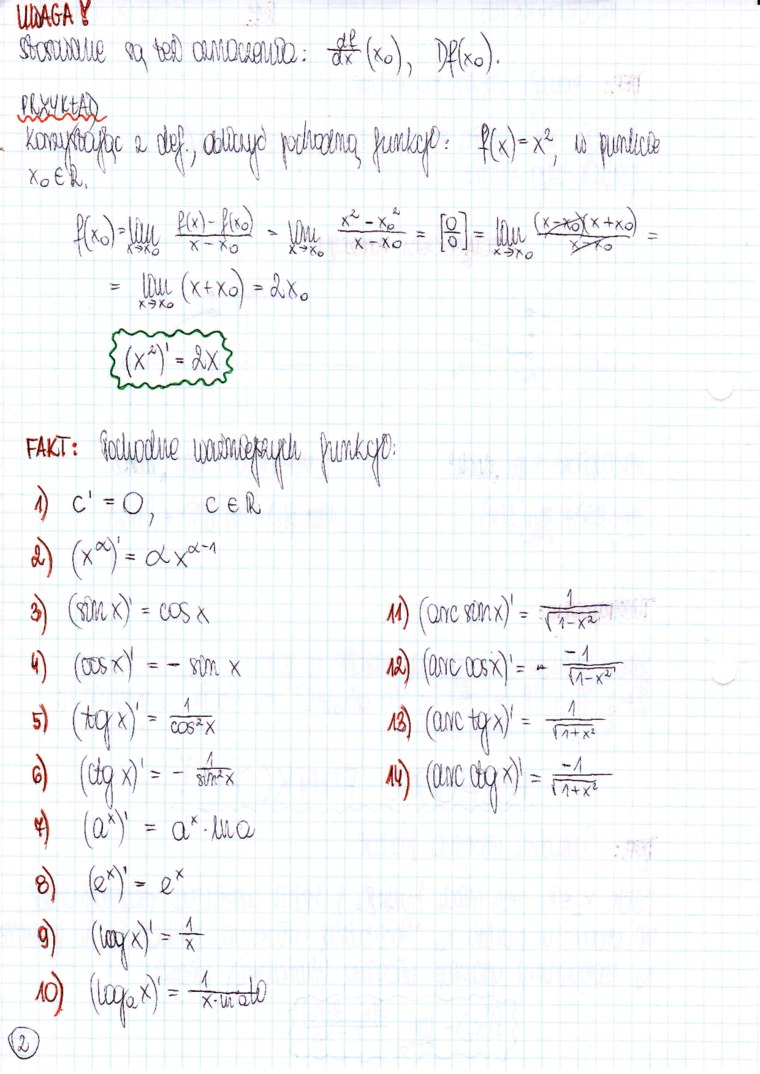 UWAGA!
Stosowane są też oznaczenia: df/dx (x₀), Df(x₀).
PRZYKŁAD
Korzystając z def., obliczyć pochodną funkcji: f(x) = x², w punkcie
x₀ ∈ ℝ.
f(x₀) = lim_{x→x₀} (f(x) - f(x₀))/(x - x₀) = lim_{x→x₀} (x² - x₀²)/(x - x₀) = [0/0] = lim_{x→x₀} ((x-x₀)(x+x₀))/(x-x₀) =
= lim_{x→x₀} (x + x₀) = 2x₀
(x²)' = 2x
FAKT: Pochodne ważniejszych funkcji:
1) c' = 0, c ∈ ℝ
2) (x^α)' = αx^(α-1)
3) (sin x)' = cos x
4) (cos x)' = - sin x
5) (tg x)' = 1/cos²x
6) (ctg x)' = - 1/sin²x
7) (a^x)' = a^x · ln a
8) (e^x)' = e^x
9) (log x)' = 1/x
10) (logₐ x)' = 1/(x·ln a)
11) (arc sin x)' = 1/√(1-x²)
12) (arc cos x)' = - -1/√(1-x²)
13) (arc tg x)' = 1/√(1+x²)
14) (arc ctg x)' = -1/√(1+x²)
2